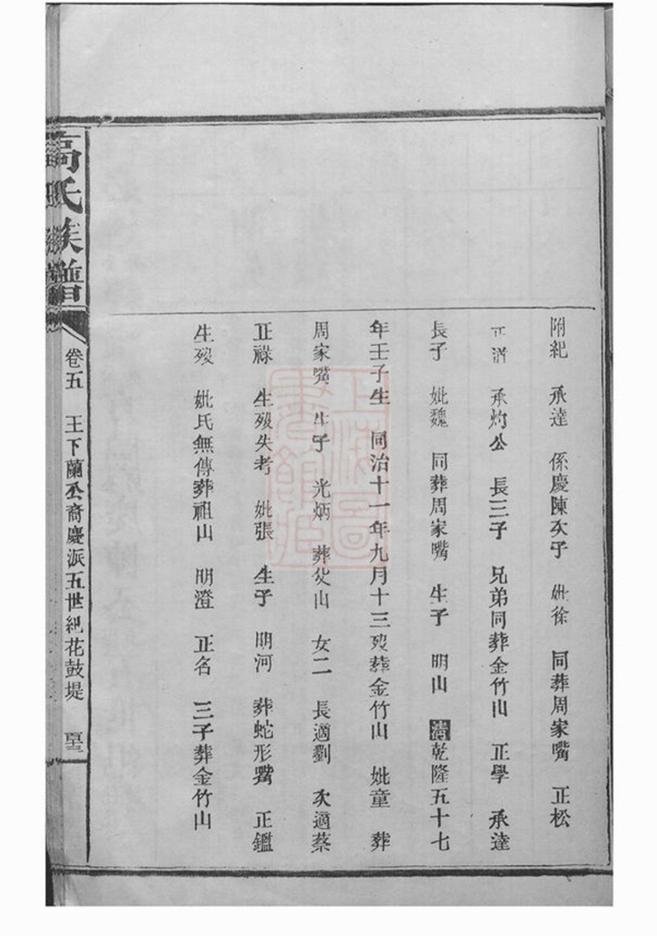 附紀 承達 係慶陳次子 妣徐 同葬周家嘴 正松
正清 承灼公 長三子 兄弟同葬金竹山 正學 承達
長子 妣魏 同葬周家嘴 生子 明山 清乾隆五十七
年壬子生 同治十一年九月十三歿葬金竹山 妣童 葬
周家嘴 生子 光炳 葬父山 女二 長適劉 次適蔡
正祿 生歿失考 妣張 生子 明河 葬蛇形嘴 正鑑
生歿 妣氏無傳葬祖山 明澄 正名 三子葬金竹山
高氏族譜 卷五 王下蘭公裔慶派五世紀花鼓堤
上海圖書館藏